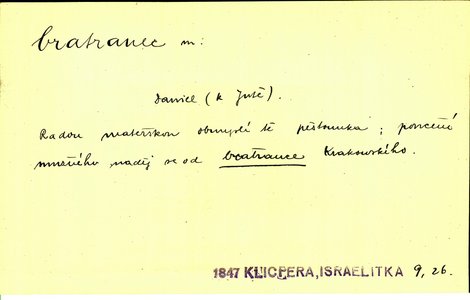 bratranec m:
Daniel (k Jutě).
Radou mateřskou obmyslí tě pěstounka; poručení
mnohého naděj se od bratrance Krakovského.
1847 KLICPERA, ISRAELITKA 9, 26.